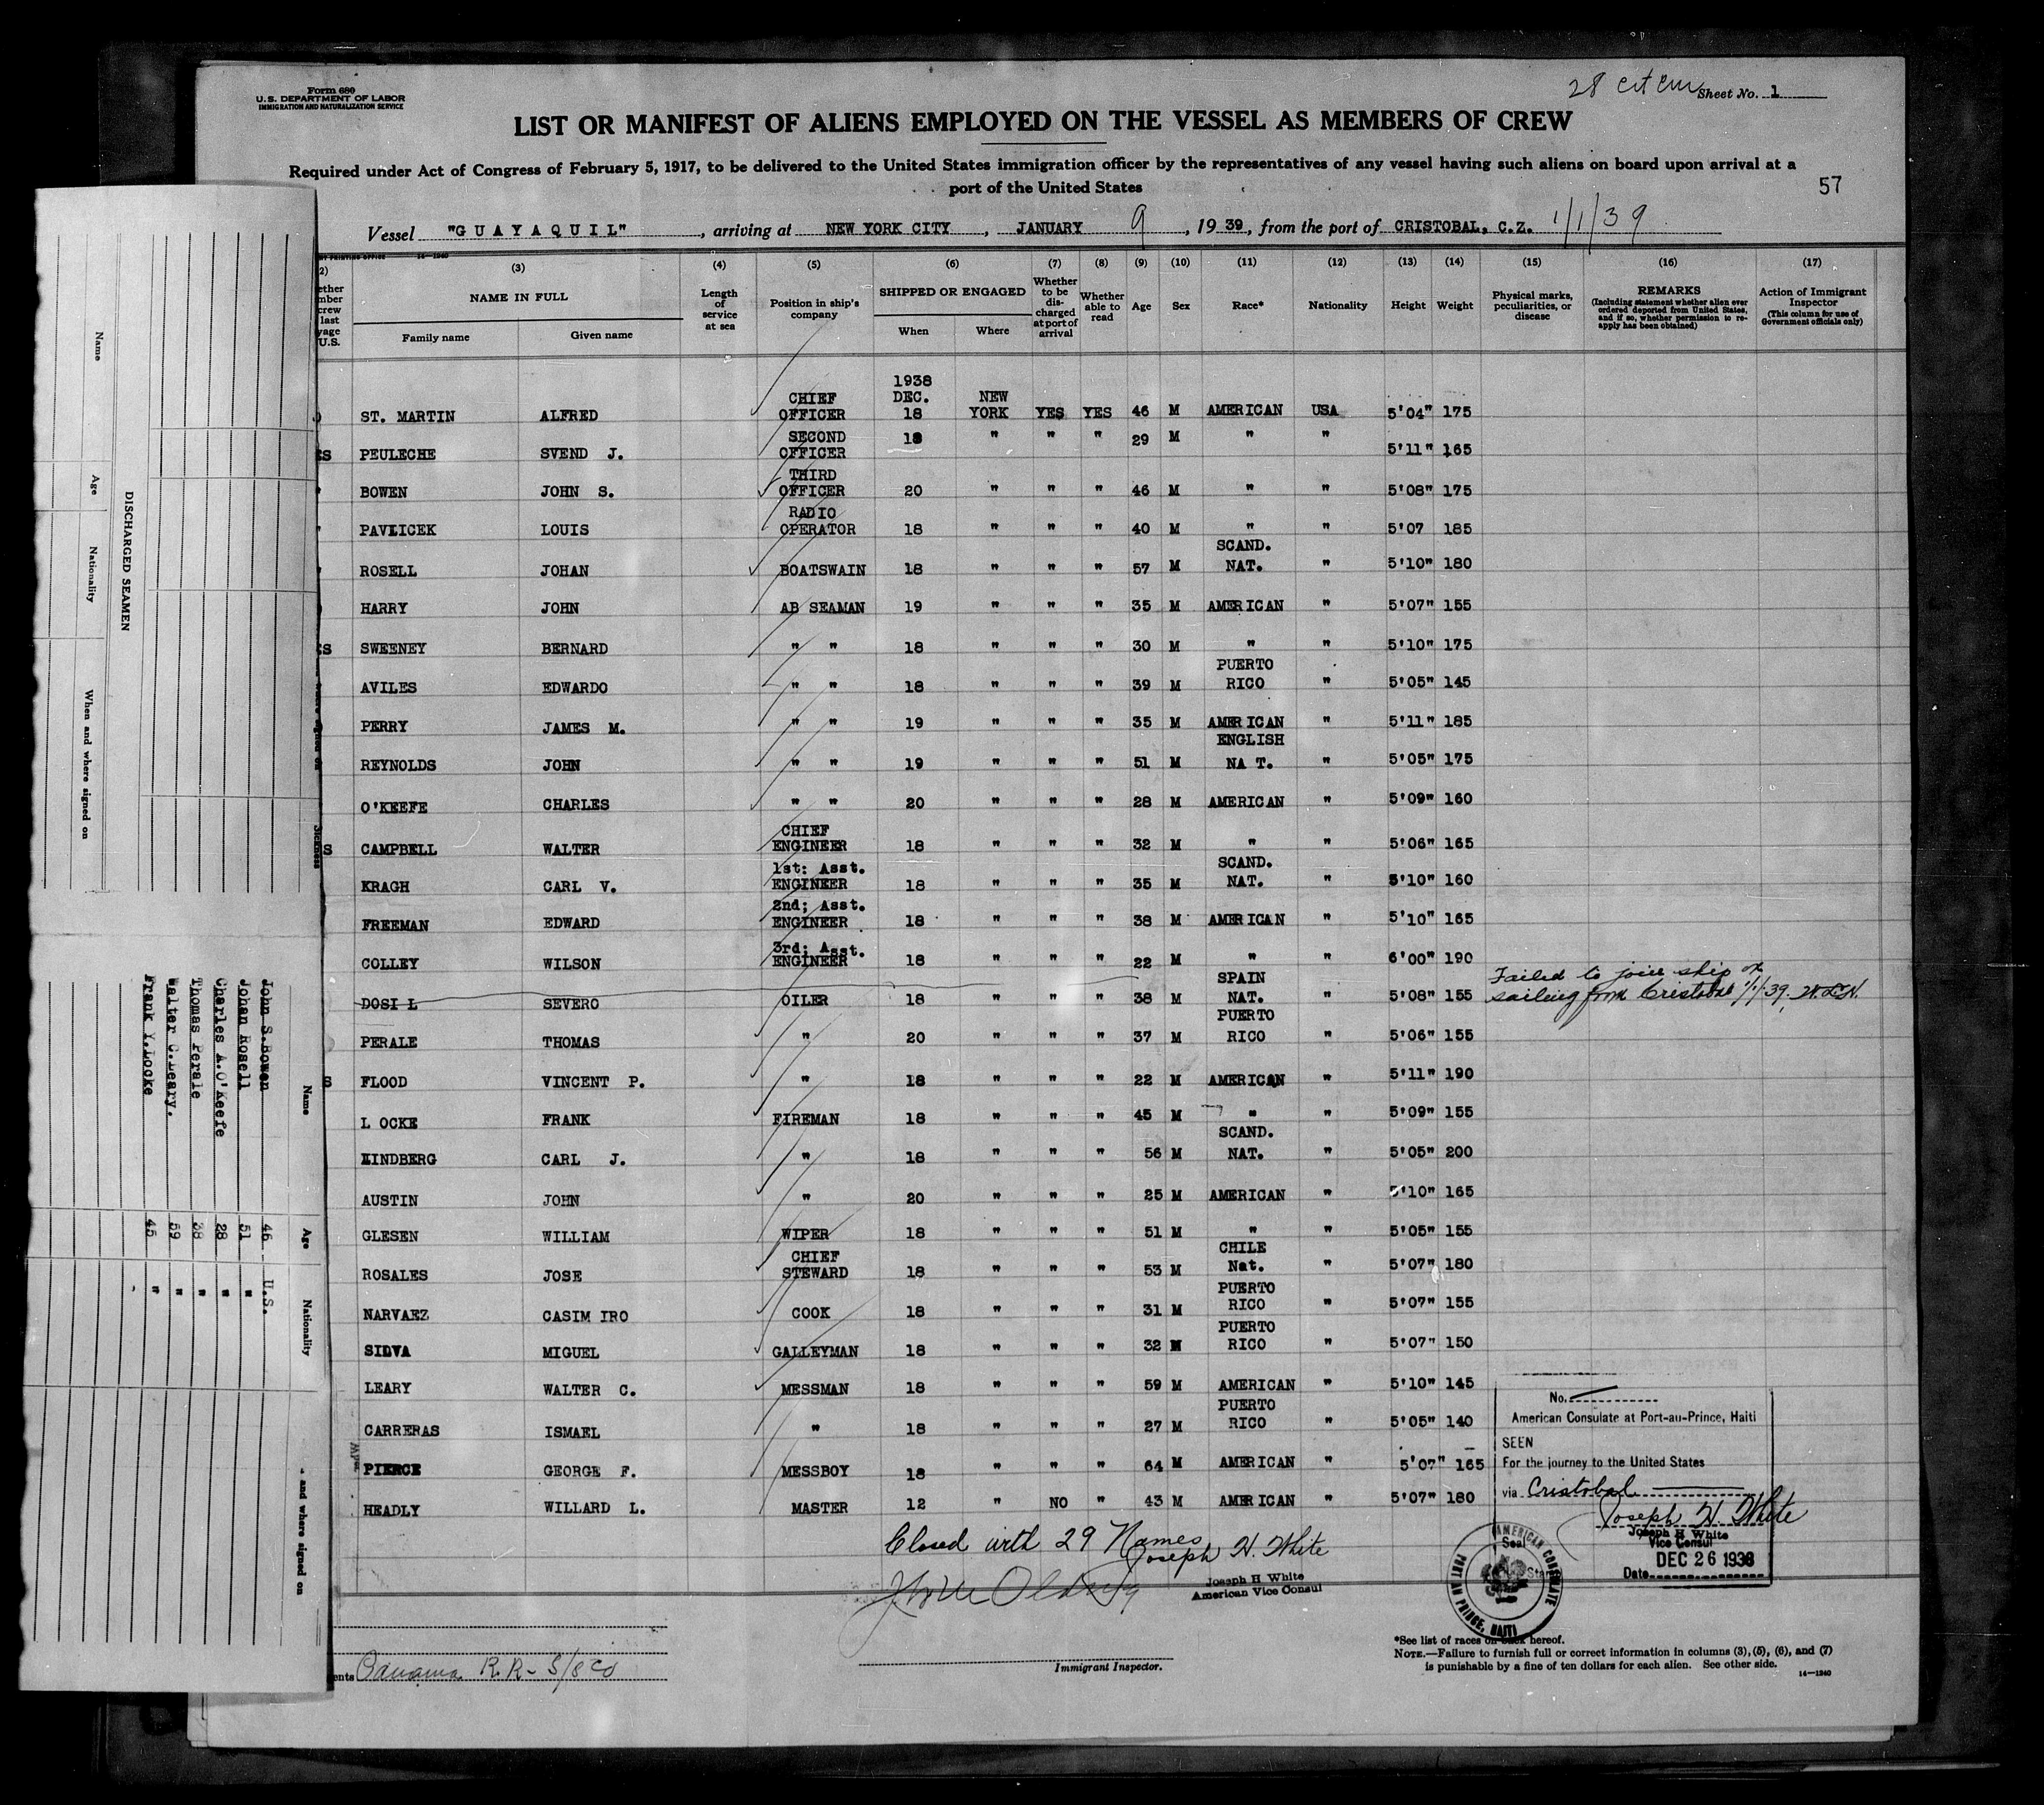 Form 680
U.S. DEPARTMENT OF LABOR
IMMIGRATION AND NATURALIZATION SERVICE
28 cit
Sheet No. 1
LIST OR MANIFEST OF ALIENS EMPLOYED ON THE VESSEL AS MEMBERS OF CREW
Required under Act of Congress of February 5, 1917, to be delivered to the United States immigration officer by the representatives of any vessel having such aliens on board upon arrival at a
port of the United States
57
Vessel "GUAYAQUIL", arriving at NEW YORK CITY, JANUARY 9, 1939, from the port of CRISTOBAL, C.Z. 1/1/39
(2) (3) (4) (5) (6) (7) (8) (9) (10) (11) (12) (13) (14) (15) (16) (17)
NAME IN FULL
Family name Given name
Length of service at sea
Position in ship's company
SHIPPED OR ENGAGED
When Where
Whether to be discharged at port of arrival
Whether able to read
Age
Sex
Race*
Nationality
Height
Weight
Physical marks, peculiarities, or disease
REMARKS
(Including statement whether alien ever ordered deported from United States, and if so, whether permission to reapply has been obtained)
Action of Immigrant Inspector
(This column for use of Government officials only)
ST. MARTIN ALFRED CHIEF OFFICER 1938 DEC. 18 NEW YORK YES YES 46 M AMERICAN USA 5'04" 175
PEULECHE SVEND J. SECOND OFFICER 18 " " " 29 M " " 5'11" 165
BOWEN JOHN S. THIRD OFFICER 20 " " " 46 M " " 5'08" 175
PAVLICEK LOUIS RADIO OPERATOR 18 " " " 40 M " " 5'07 185
ROSELL JOHAN BOATSWAIN 18 " " " 57 M SCAND. NAT. " 5'10" 180
HARRY JOHN AB SEAMAN 19 " " " 35 M AMERICAN " 5'07" 155
SWEENEY BERNARD " " 18 " " " 30 M " " 5'10" 175
AVILES EDWARDO " " 18 " " " 39 M PUERTO RICO " 5'05" 145
PERRY JAMES M. " " 19 " " " 35 M AMERICAN " 5'11" 185
REYNOLDS JOHN " " 19 " " " 51 M ENGLISH NA T. " 5'05" 175
O'KEEFE CHARLES " " 20 " " " 28 M AMERICAN " 5'09" 160
CAMPBELL WALTER CHIEF ENGINEER 18 " " " 32 M " " 5'06" 165
KRAGH CARL V. 1st: Asst. ENGINEER 18 " " " 35 M SCAND. NAT. " 5'10" 160
FREEMAN EDWARD 2nd; Asst. ENGINEER 18 " " " 38 M AMERICAN " 5'10" 165
COLLEY WILSON 3rd; Asst. ENGINEER 18 " " " 22 M " " 6'00" 190
DOSI L SEVERO OILER 18 " " " 38 M SPAIN NAT. " 5'08" 155 Failed to join ship on sailing from Cristobal 1/1/39.
PERALE THOMAS " 20 " " " 37 M PUERTO RICO " 5'06" 155
FLOOD VINCENT P. " 18 " " " 22 M AMERICAN " 5'11" 190
L OCKE FRANK FIREMAN 18 " " " 45 M " " 5'09" 155
LINDBERG CARL J. " 18 " " " 56 M SCAND. NAT. " 5'05" 200
AUSTIN JOHN " 20 " " " 25 M AMERICAN " 5'10" 165
GLESEN WILLIAM WIPER 18 " " " 51 M " " 5'05" 155
ROSALES JOSE CHIEF STEWARD 18 " " " 53 M CHILE Nat. " 5'07" 180
NARVAEZ CASIM IRO COOK 18 " " " 31 M PUERTO RICO " 5'07" 155
SILVA MIGUEL GALLEYMAN 18 " " " 32 M PUERTO RICO " 5'07" 150
LEARY WALTER C. MESSMAN 18 " " " 59 M AMERICAN " 5'10" 145
CARRERAS ISMAEL " 18 " " " 27 M PUERTO RICO " 5'05" 140
PIERCE GEORGE F. MESSBOY 18 " " " 64 M AMERICAN " 5'07" 165
HEADLY WILLARD L. MASTER 12 " NO " 43 M AMERICAN " 5'07" 180
Closed with 29 Names
Joseph H. White
Joseph H White
American Vice Consul
Immigrant Inspector.
Panama R.R. S/S Co
No.
American Consulate at Port-au-Prince, Haiti
SEEN
For the journey to the United States
via Cristobal
Joseph H. White
Joseph H White
Vice Consul
Seal
DEC 26 1938
Date
AMERICAN CONSULATE
PORT AU PRINCE, HAITI
*See list of races on back hereof.
NOTE.—Failure to furnish full or correct information in columns (3), (5), (6), and (7)
is punishable by a fine of ten dollars for each alien. See other side.
14—1240
DISCHARGED SEAMEN
Name Age Nationality When and where signed on
Name Age Nationality and where signed on
John S. Bowen 46 U.S.
Johan Rosell 51 "
Charles A. O'Keefe 28 "
Thomas Perale 38 "
Walter C. Leary. 59 "
Frank Y. Locke 45 "
Sickness